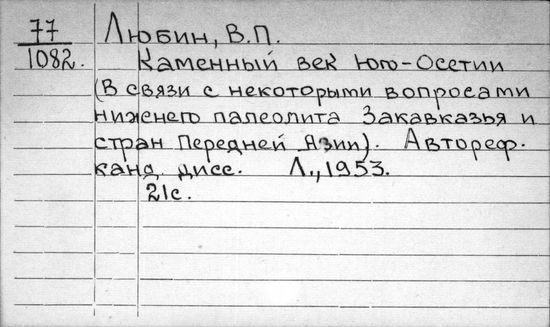 77 Любин, В.П.
1082. Каменный век Юго-Осетии
(В связи с некоторыми вопросами
нижнего палеолита Закавказья и
стран Передней Азии). Автореф.
канд. дисс. Л., 1953.
21с.